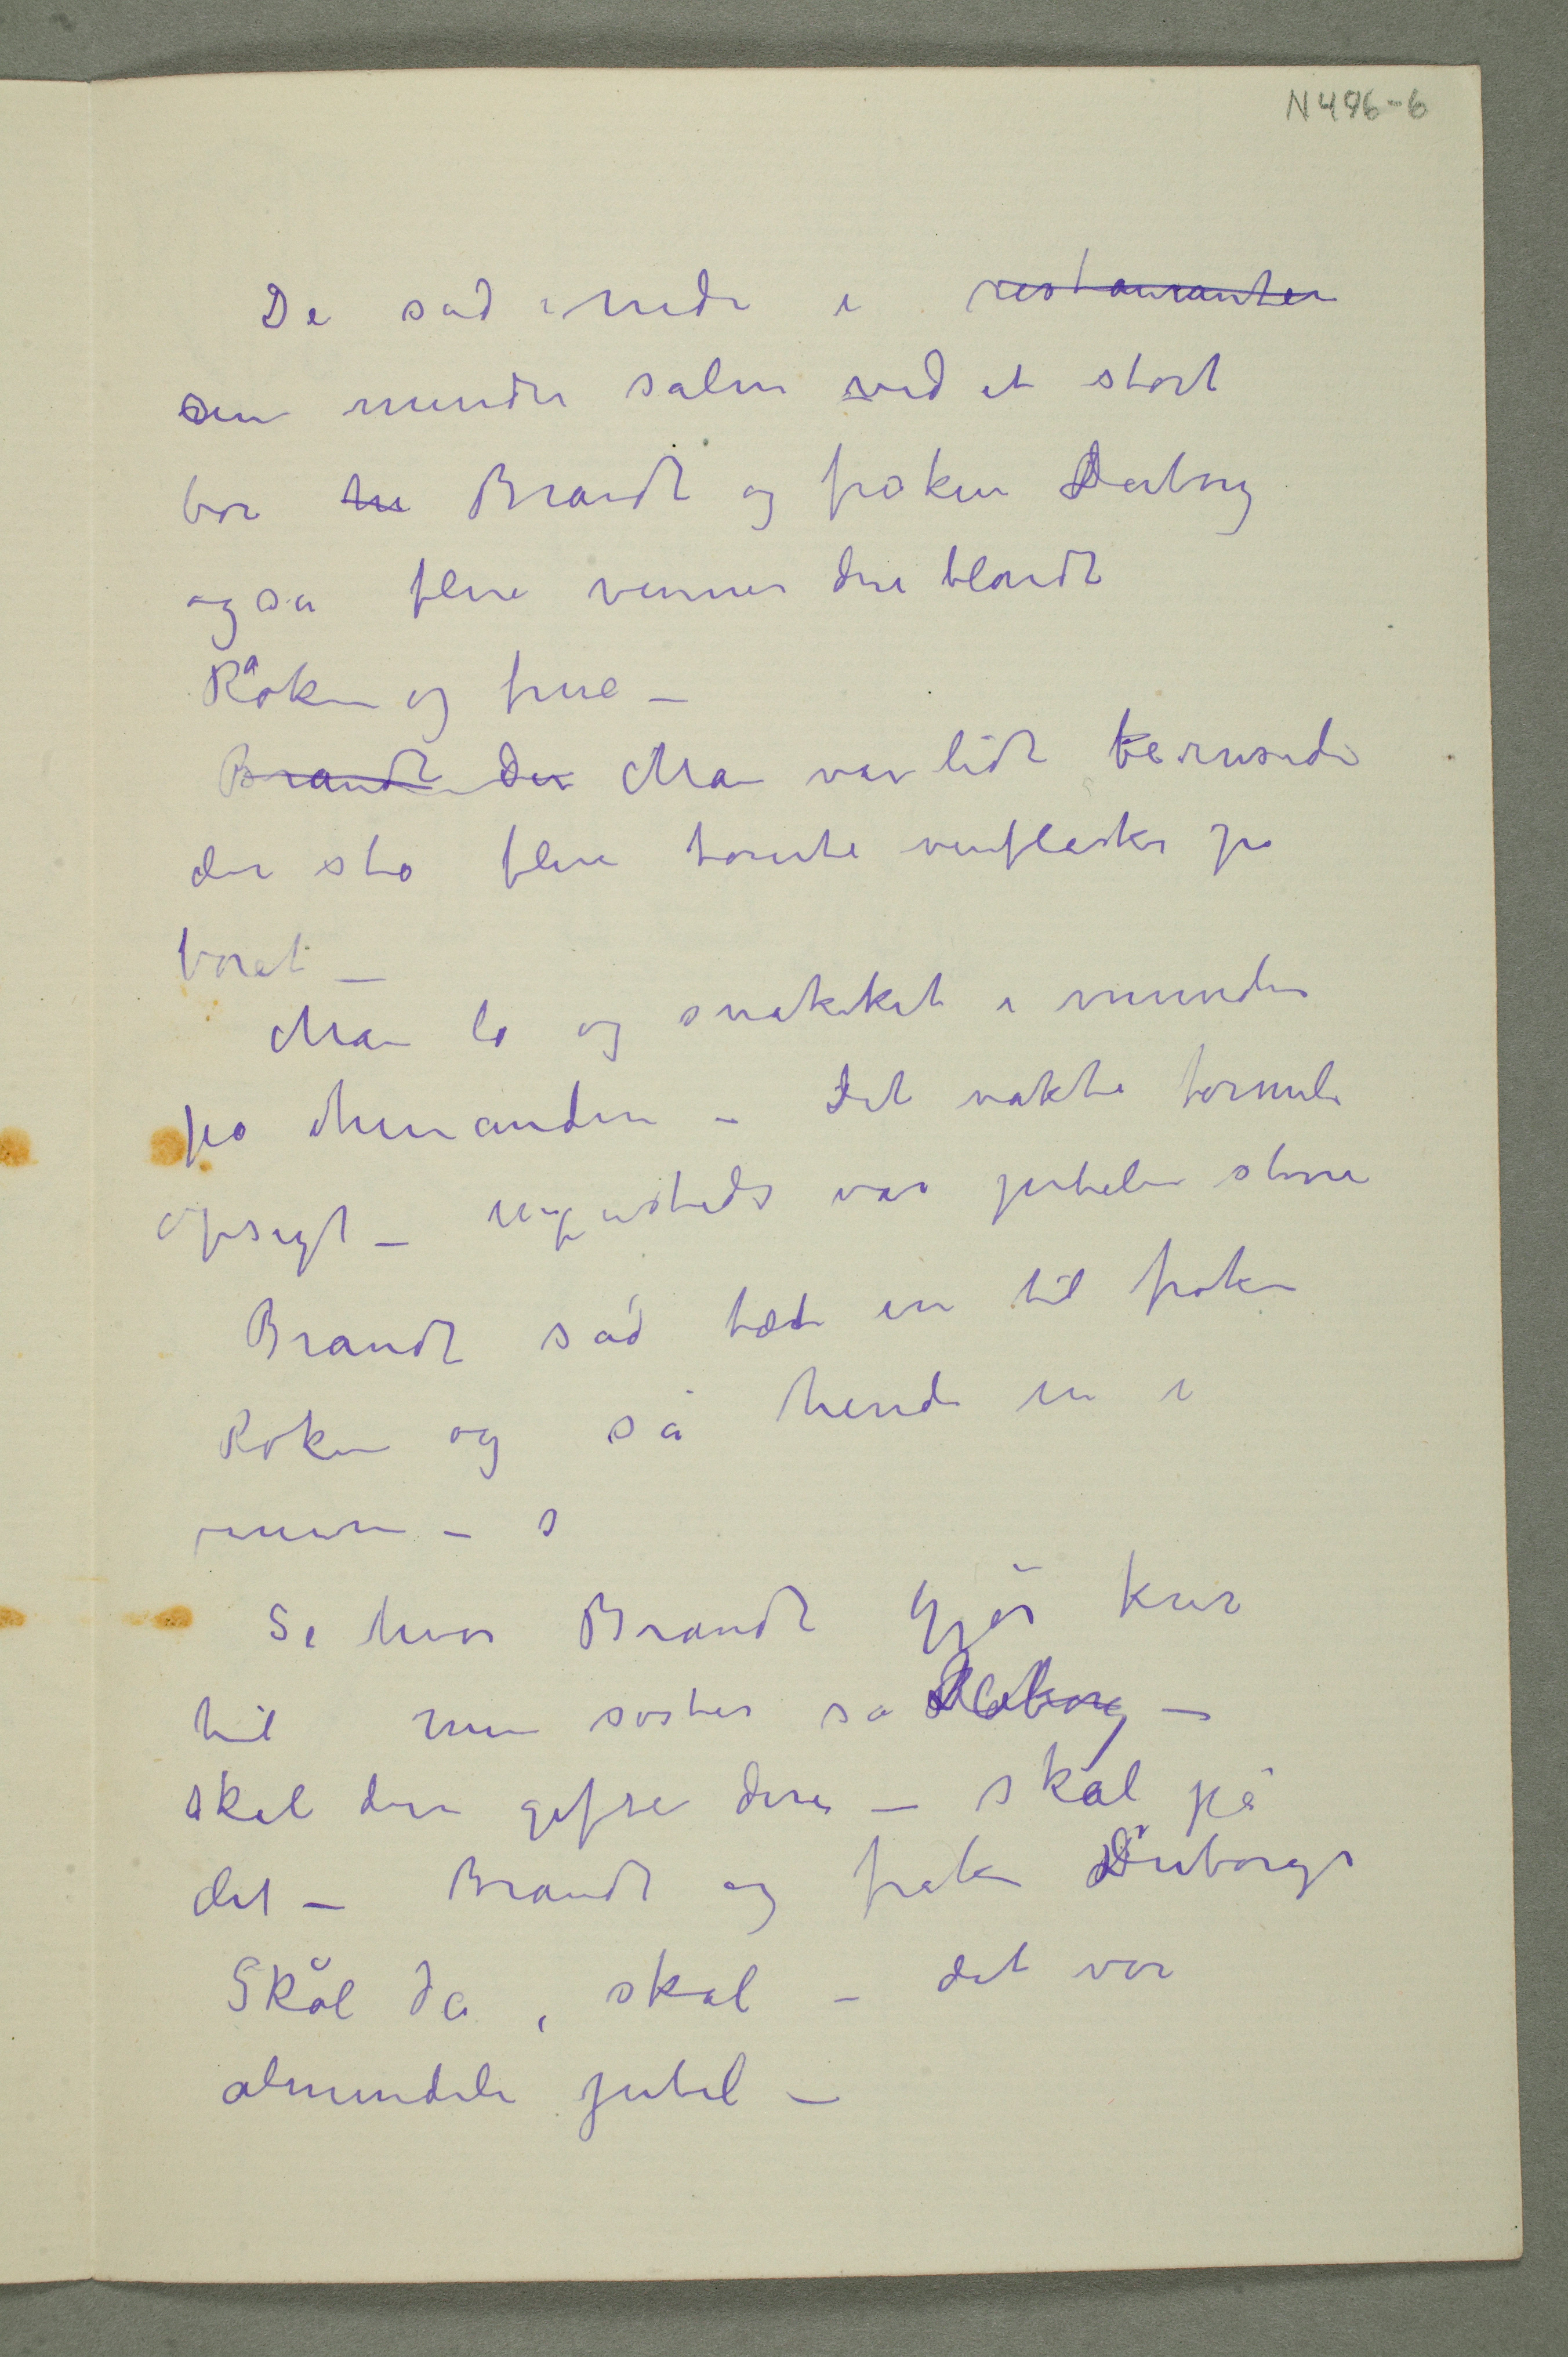 N 496-6
De sad nede i restauranten
den mindre salen ved et stort
bor he Brandt og frøken Duborg
også flere venner der iblandt
Råken og frue –
Brandt der Man var lidt berusede
der sto flere tomte vinflasker på
boret –
Man lo og snakket i munden
på hinanden – Det vakte formeli
opsigt – var jubelen store
Brandt såd tæt in til frøken
Roken og så hende in i
– s
Se hvor Brandt gjør kur
til min søster sa Duborg –
skal dere gifte dere – skål på
det – Brandt og frøken Düborgs
Skål da, skål – det var
almindeli jubel –